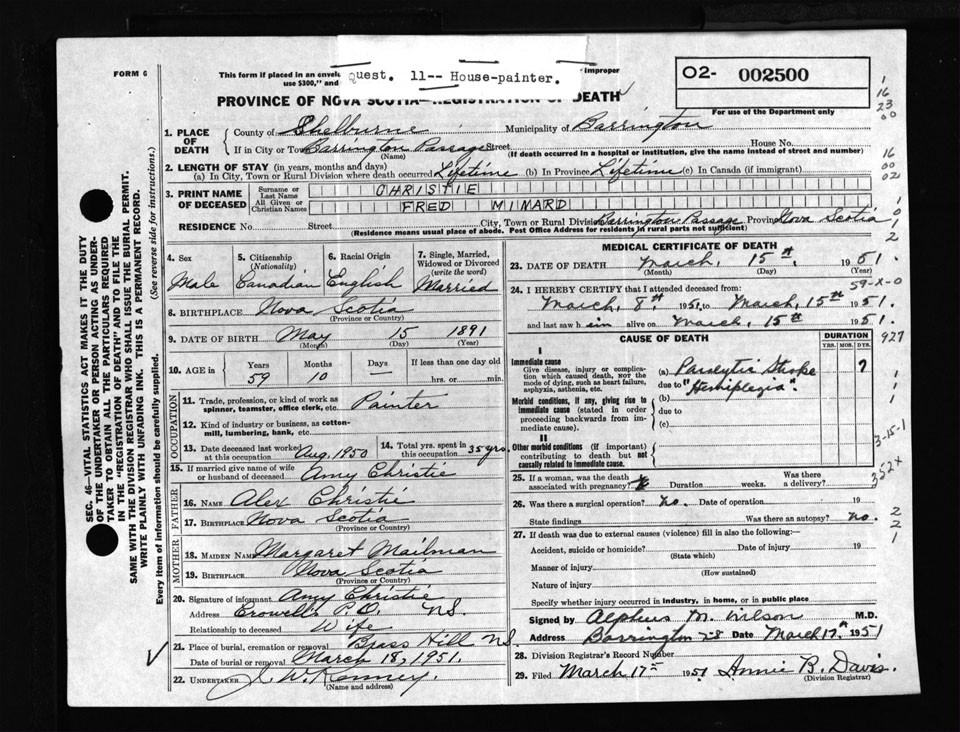 FORM 6
This form if placed in an envelo
use $300," and
Quest. 11-- House-painter.
r improper
PROVINCE OF NOVA SCOTIA—REGISTRATION OF DEATH
O2- 002500
For use of the Department only
1. PLACE OF DEATH
County of Shelburne Municipality of Barrington
If in City or Town Barrington Passage Street House No.
(Name) (If death occurred in a hospital or institution, give the name instead of street and number)
2. LENGTH OF STAY (in years, months and days)
(a) In City, Town or Rural Division where death occurred Lifetime (b) In Province Lifetime (c) In Canada (if immigrant)
3. PRINT NAME OF DECEASED
Surname or Last Name CHRISTIE
All Given or Christian Names FRED MINARD
RESIDENCE No. Street City, Town or Rural Division Barrington Passage Province Nova Scotia
(Residence means usual place of abode. Post Office Address for residents in rural parts not sufficient)
4. Sex 5. Citizenship (Nationality) 6. Racial Origin 7. Single, Married, Widowed or Divorced (write the word)
Male Canadian English Married
8. BIRTHPLACE Nova Scotia
(Province or Country)
9. DATE OF BIRTH May 15 1891
(Month) (Day) (Year)
10. AGE in Years Months Days If less than one day old
59 10 hrs. or min.
OCCUPATION
11. Trade, profession, or kind of work as spinner, teamster, office clerk, etc. Painter
12. Kind of industry or business, as cotton-mill, lumbering, bank, etc.
13. Date deceased last worked at this occupation Aug. 1950 14. Total yrs. spent in this occupation 35 yrs.
15. If married give name of wife or husband of deceased Amy Christie
FATHER
16. NAME Alex Christie
17. BIRTHPLACE Nova Scotia
(Province or Country)
MOTHER
18. MAIDEN NAME Margaret Mailman
19. BIRTHPLACE Nova Scotia
(Province or Country)
20. Signature of informant Amy Christie
Address Crowell P.O. N.S.
Relationship to deceased Wife
21. Place of burial, cremation or removal Brass Hill N.S.
Date of burial or removal March 18, 1951.
22. UNDERTAKER J. W. Kenney.
(Name and address)
MEDICAL CERTIFICATE OF DEATH
23. DATE OF DEATH March, 15th 1951
(Month) (Day) (Year)
24. I HEREBY CERTIFY that I attended deceased from:
March, 8th 1951 to March, 15th 1951.
and last saw h im alive on March, 15th 1951.
CAUSE OF DEATH DURATION
YRS. MOS. DYS.
I
Immediate cause
Give disease, injury or complication which caused death, not the mode of dying, such as heart failure, asphyxia, asthenia, etc.
(a) Paralytic Stroke 7
due to "Hemiplegia".
Morbid conditions, if any, giving rise to immediate cause (stated in order proceeding backwards from immediate cause).
(b)
due to
(c)
II
Other morbid conditions (if important) contributing to death but not causally related to immediate cause.
25. If a woman, was the death associated with pregnancy? Duration weeks. Was there a delivery?
26. Was there a surgical operation? No. Date of operation 19
State findings Was there an autopsy? No.
27. If death was due to external causes (violence) fill in also the following:—
Accident, suicide or homicide? Date of injury 19
(State which)
Manner of injury
(How sustained)
Nature of injury
Specify whether injury occurred in industry, in home, or in public place
Signed by Alpheus M. Wilson M.D.
Address Barrington N.S Date March 17th 1951
28. Division Registrar's Record Number
29. Filed March 17th 1951 Annie B. Davis.
(Division Registrar)
SEC. 46—VITAL STATISTICS ACT MAKES IT THE DUTY
OF THE UNDERTAKER OR PERSON ACTING AS UNDER-
TAKER TO OBTAIN ALL THE PARTICULARS REQUIRED
IN THE "REGISTRATION OF DEATH" AND TO FILE THE
SAME WITH THE DIVISION REGISTRAR WHO SHALL ISSUE THE BURIAL PERMIT.
WRITE PLAINLY WITH UNFADING INK. THIS IS A PERMANENT RECORD.
Every item of information should be carefully supplied. (See reverse side for instructions.)
1
16
23
00
16
00
02
1
0
1
2
59-X-0
927
1
1
1
3-15-1
352x
2
2
1